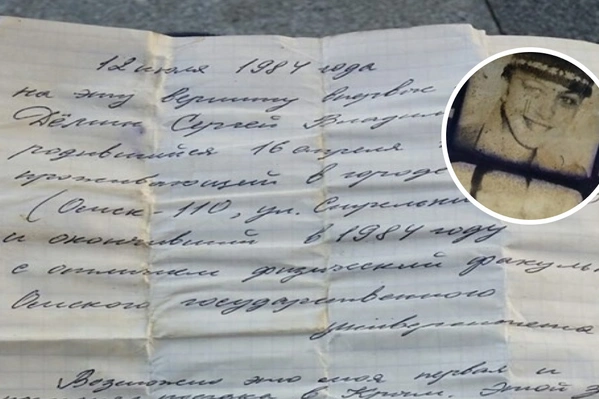 12 июля 1984 года
на эту вершину впервы
Дёмин Сергей Владим
родившийся 16 апреля
проживающий в городе
(Омск-110, ул.
и окончивший в 1984 году
с отличием физический факуль
Омского государственного
университета
Возможно это моя первая и
в Крым. Этой